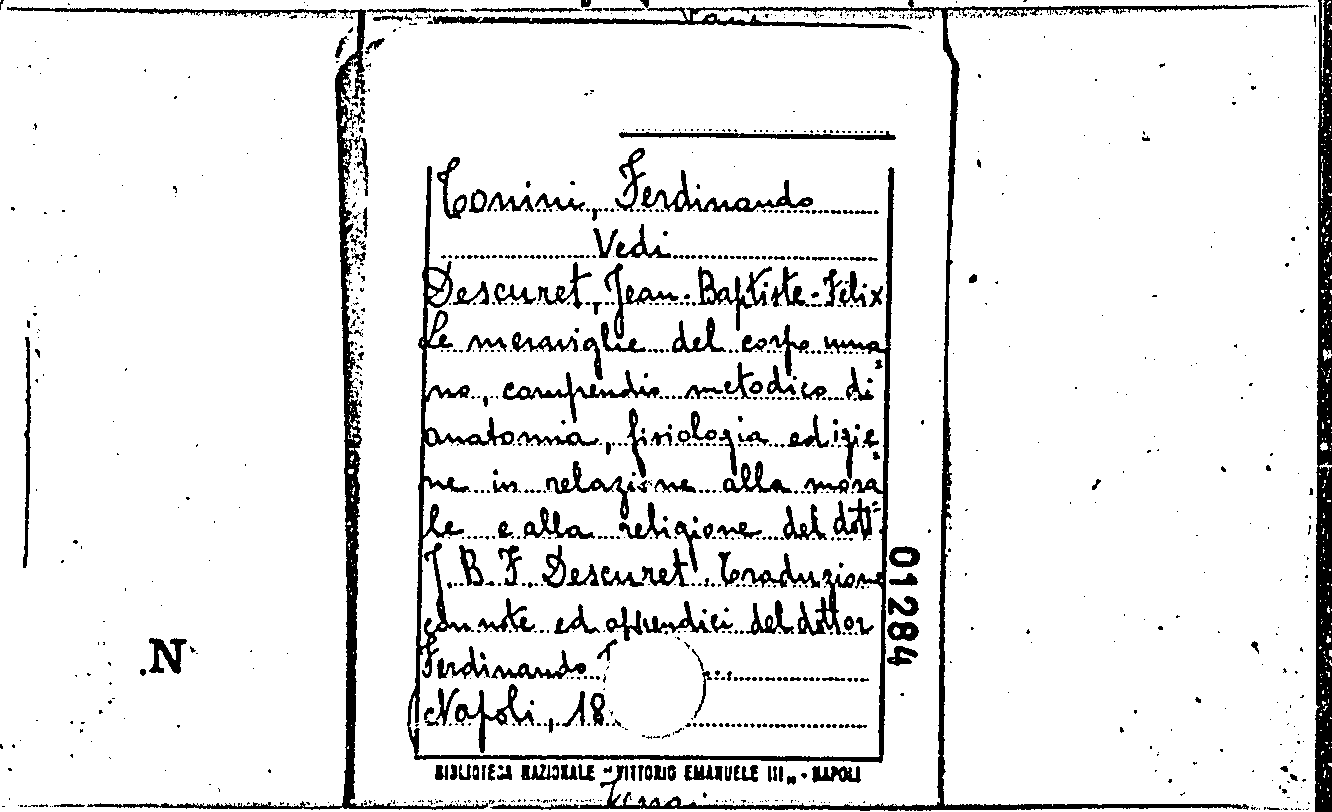 Tonini, Ferdinando
Vedi
Descuret, Jean-Baptiste-Félix
Le meraviglie del corpo uma
no, compendio metodico di
anatomia, fisiologia ed igie-
ne in relazione alla mora
le e alla religione del dott.
J. B. F. Descuret. Traduzione
con note ed appendici del dottor
Ferdinando T
Napoli, 18
BIBLIOTECA NAZIONALE "VITTORIO EMANUELE III" - NAPOLI
01284
.N